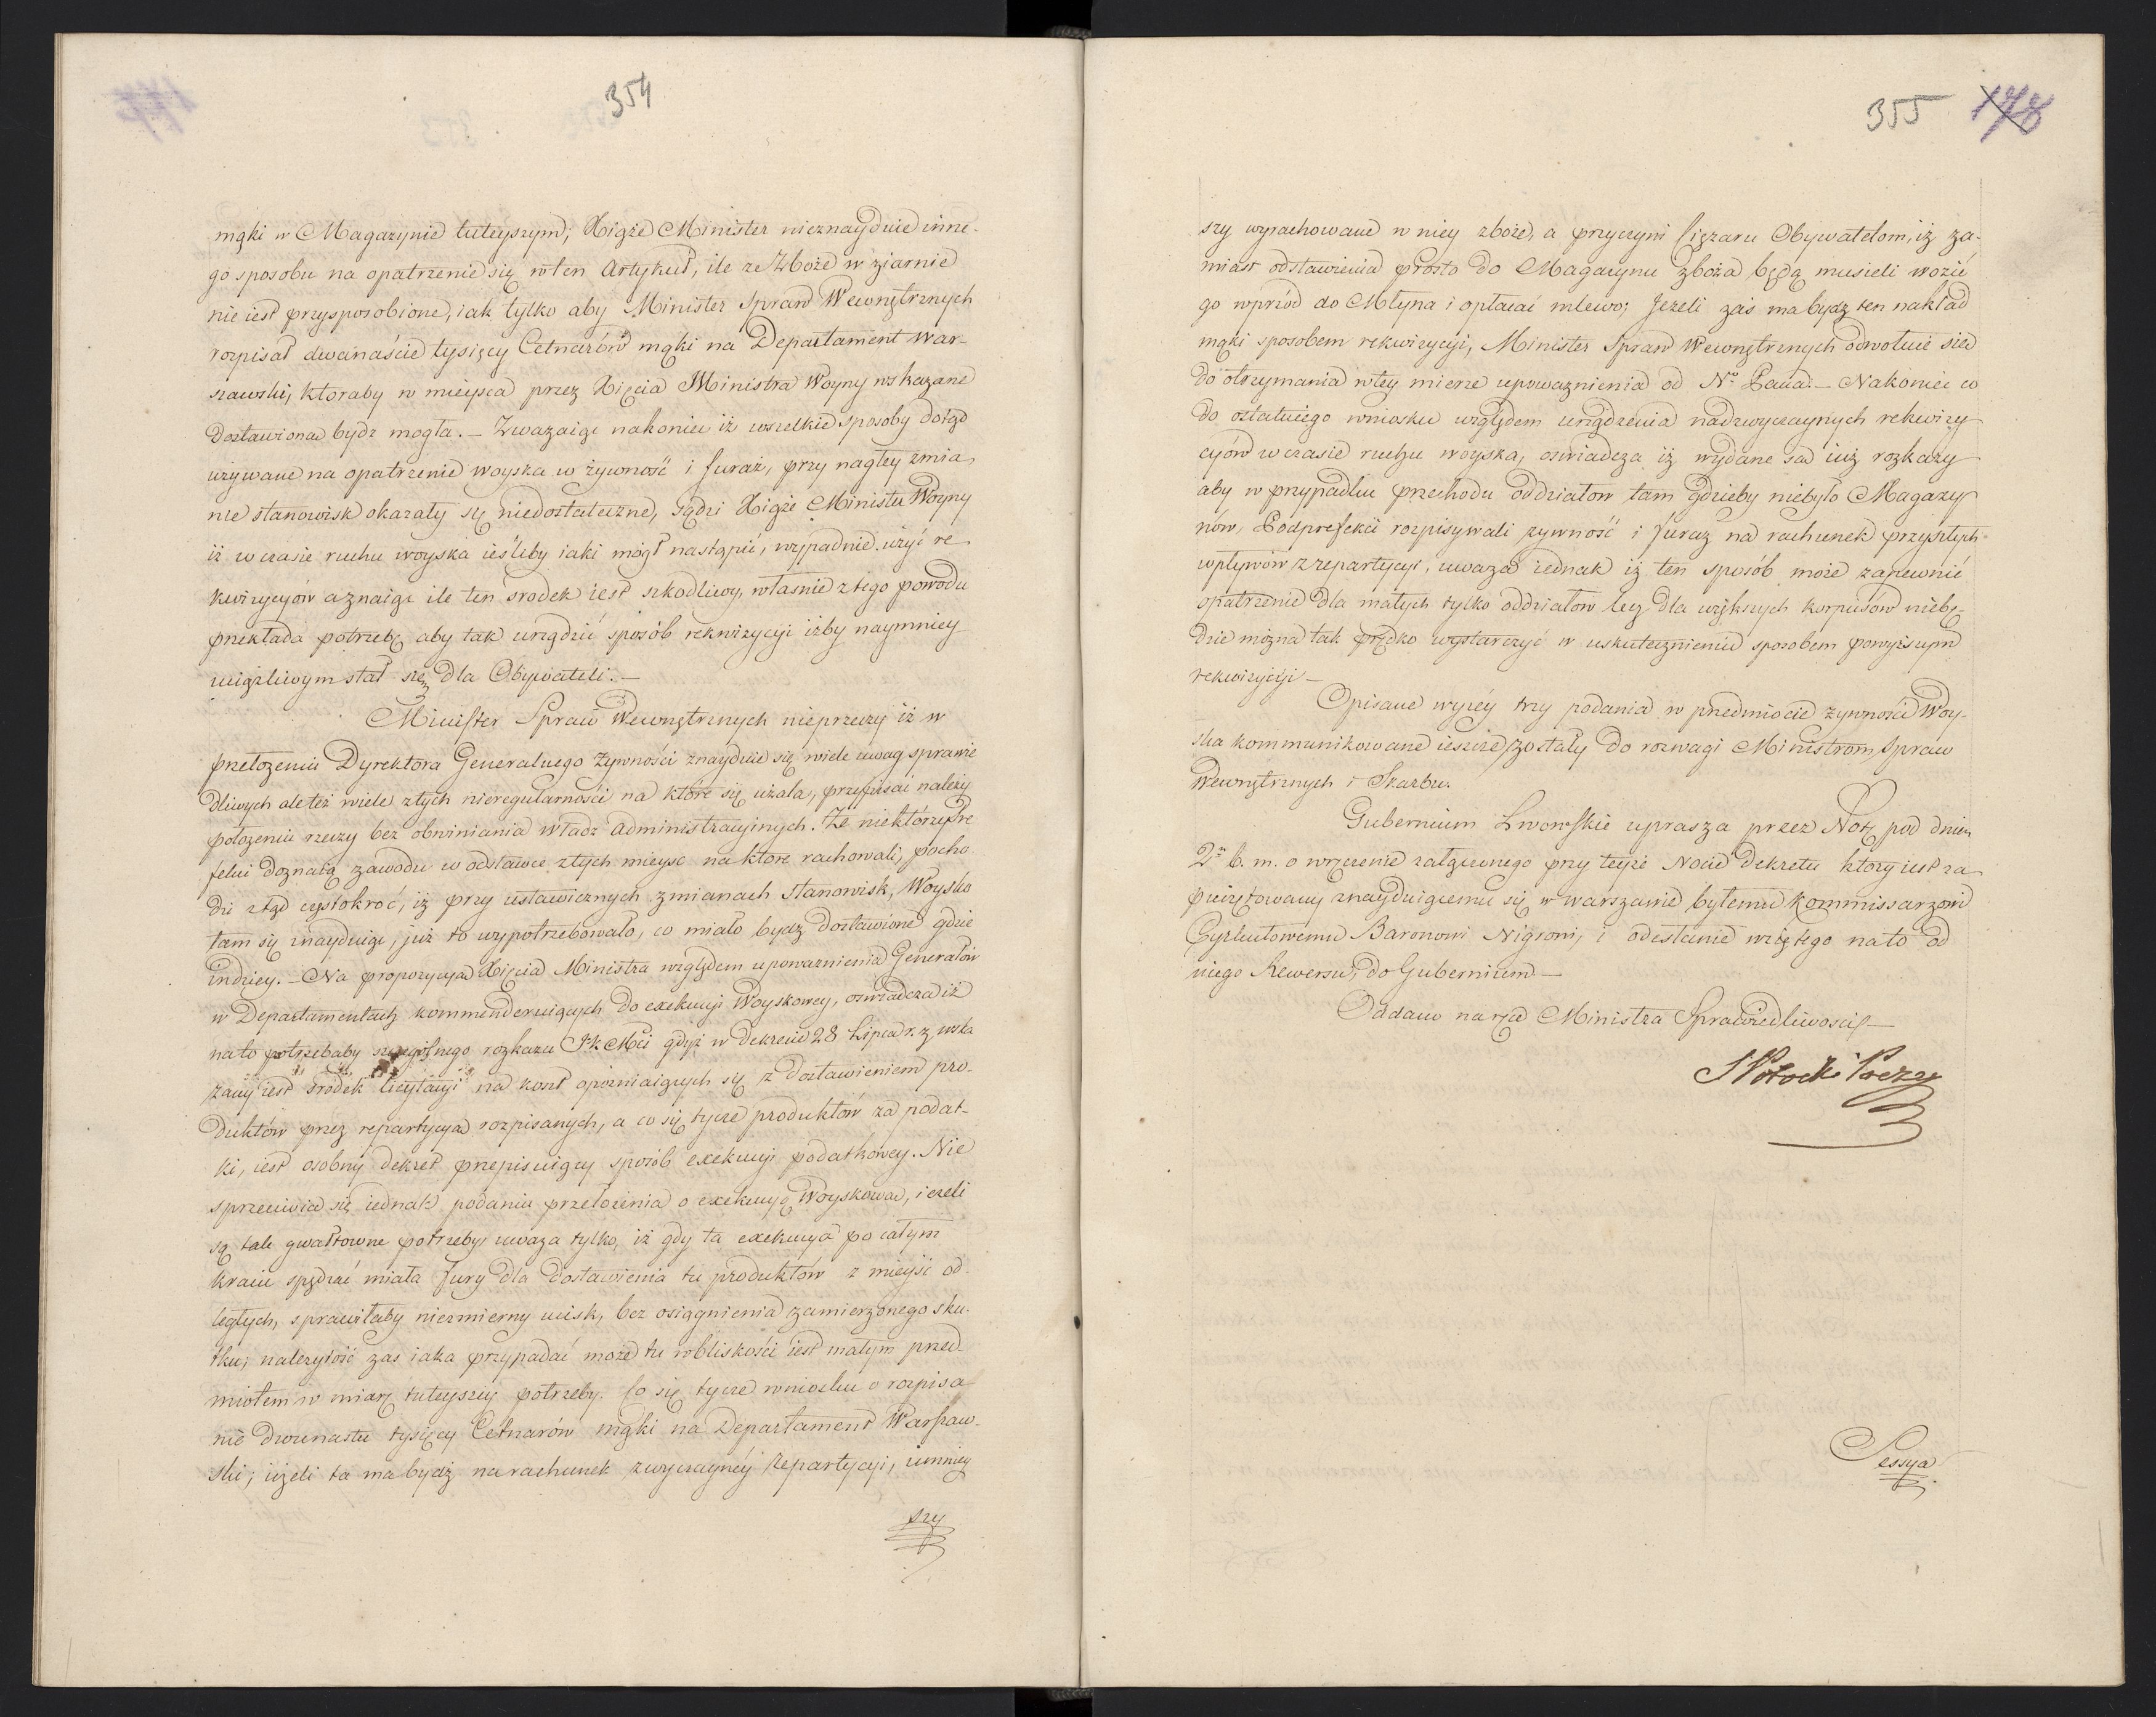 354
mąki w Magazynie tuteyszym; Xiąże Minister nieznayduie inne-
go sposobu na opatrzenie się w ten Artykuł, ile ze Zboże w ziarnie
nie iest przysposobione, iak tylko aby Minister Spraw Wewnętrznych
rozpisał dwanaście tysięcy Cetnarów mąki na Departament War-
szawski, ktoraby w mieysca przez Xięcia Ministra Woyny wskazane
dostawiona bydz mogła. — Zważaiąc nakoniec iż wszelkie sposoby dotąd
używane na opatrzenie woyska w żywność i furaż, przy nagłey zmia
nie stanowisk okazały się niedostateczne, sądzi Xiąże Minister Woyny
iż w czasie ruchu woyska ieśliby iaki mógł nastąpić, wypadnie użyć re
kwizycyów aznaiąc ile ten środek iest szkodliwy, właśnie z tego powodu
przekłada potrzebę aby tak urządzić sposób rekwizycyi iżby naymniey
uciążliwym stał się dla Obywateli. —
Minister Spraw Wewnętrznych nieprzeczy iż w
przełożeniu Dyrektora Generalnego Żywności znayduie się wiele uwag sprawie
dliwych ale też wiele z tych nieregularności na które się użala, przypisać należy
położeniu rzeczy bez obwiniania władz Administracyinych. Że niektórzy Pre
fekci doznają zawodu w odstawce z tych mieysc na ktore rachowali, pocho
dzi ztąd częstokroć, iż przy ustawicznych zmianach Stanowisk, Woysko
tam się znayduiąc, już to wypotrzebowało, co miało bydz dostawione gdzie
indziey. — Na propozycyą Xięcia Ministra względem upoważnienia Generałów
w Departamentach kommenderuiących do exekucyi Woyskowey, oświadcza iż
nato potrzebaby rozkazu JK Mci gdyż w dekrecie 28 Lipca r. z wska
zany iest środek licytacyi na koszt opozniaiących się z dostawieniem pro-
duktów przez repartycyą rozpisanych, a co się tycze produktów za podat-
ki, iest osobny dekret przepisuiący sposób exekucyi podatkowey. Nie
sprzeciwia się iednak podaniu przełożenia o exekucyą Woyskową, ieżeli
są tak gwałtowne potrzeby; uważa tylko, iż gdy ta exekucya po całym
kraiu spędzać miała fury dla dostawienia tu produktów z mieysc od-
ległych, sprawiłaby niezmierny ucisk, bez osiągnienia zamierzonego sku-
tku; należytość zaś iaka przypadać może tu w bliskości iest małym przed-
miotem w miarę tuteyszey potrzeby. Co się tycze wniosku o rozpisa
nie dwunastu tysięcy Cetnarów mąki na Departament Warszaw-
ski; ieżeli ta ma bydź na rachunek zwyczayney Repartycyi, umniey
szy
355 178
szy wyrachowane w niey zboże, a przyczyni ciężaru Obywatelom, iż za-
miast odstawienia prosto do Magazynu zboża będą musieli wozić
go wprzód do Młyna i opłacać mlewo; Jeżeli zaś ma bydz ten nakład
mąki sposobem rekwizycyi, Minister Spraw Wewnętrznych odwołuie sie
do otrzymania w tey mierze upoważnienia od No Pana. — Nakoniec co
do ostatniego wniosku względem urządzenia nadzwyczaynych rekwizy
cyów w czasie ruchu woyska, oświadcza iż wydane są iuż rozkazy
aby w przypadku przechodu oddziałow tam gdzieby niebyło Magazy
nów, Podprefekci rozpisywali żywność i furaż na rachunek przyszłych
wpływów z repartycyi, uważa iednak iż ten sposób może zapewnić
opatrzenie dla małych tylko oddziałow lecz dla większych korpusów niebę-
dzie można tak prędko wystarczyć w uskutecznieniu sposobem powyższym
rekwizycyi —
Opisane wyżey trzy podania w przedmiocie żywności Woy-
ska kommunikowane ieszcze zostały do rozwagi Ministrom, Spraw
Wewnętrznych i Skarbu.
Gubernium Lwowskie uprasza przez Notę pod dniem
2o b. m. o wręczenie załączonego przy teyże Nocie dekretu który iest za
pieczętowany znayduiącemu się w Warszawie byłemu Kommissarzowi
Cyrkułowemu Baronowi Nigroni, i odesłanie wziętego nato od
niego Rewersu, do Gubernium —
Oddano na ręce Ministra Sprawiedliwości —
S Potocki Prezes
Sessya